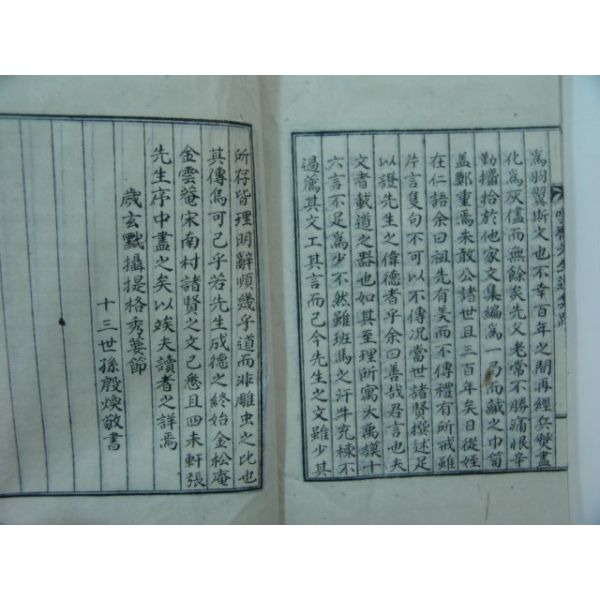 爲羽翼斯文也不幸百年之間再經兵燹盡
化爲灰儘而無餘矣先父老當不勝痛恨辛
勤攟拾於他家文集編爲一局而藏之巾笥
盖鄭重焉未敢公諸世且三百年矣日從姪
在仁語余曰祖先有美而不傳禮有所戒雖
片言隻句不可以不傳况當世諸賢撰述足
以證先生之偉德者乎余曰善哉君言也夫
文者載道之器也如其至理所寓大禹謨十
六言不足爲少不然雖班馬之汗牛充棟不
過薦其文工其言而已今先生之文雖少其
所存皆理明辭順幾乎道而非雕虫之比也
其傳烏可已乎若先生成德之終始金松庵
金雲菴宋南村諸賢之文已應且四未軒張
先生序中盡之矣以竢夫讀者之詳焉
歲玄黓攝提格秀葽節
十三世孫殷煥敬書